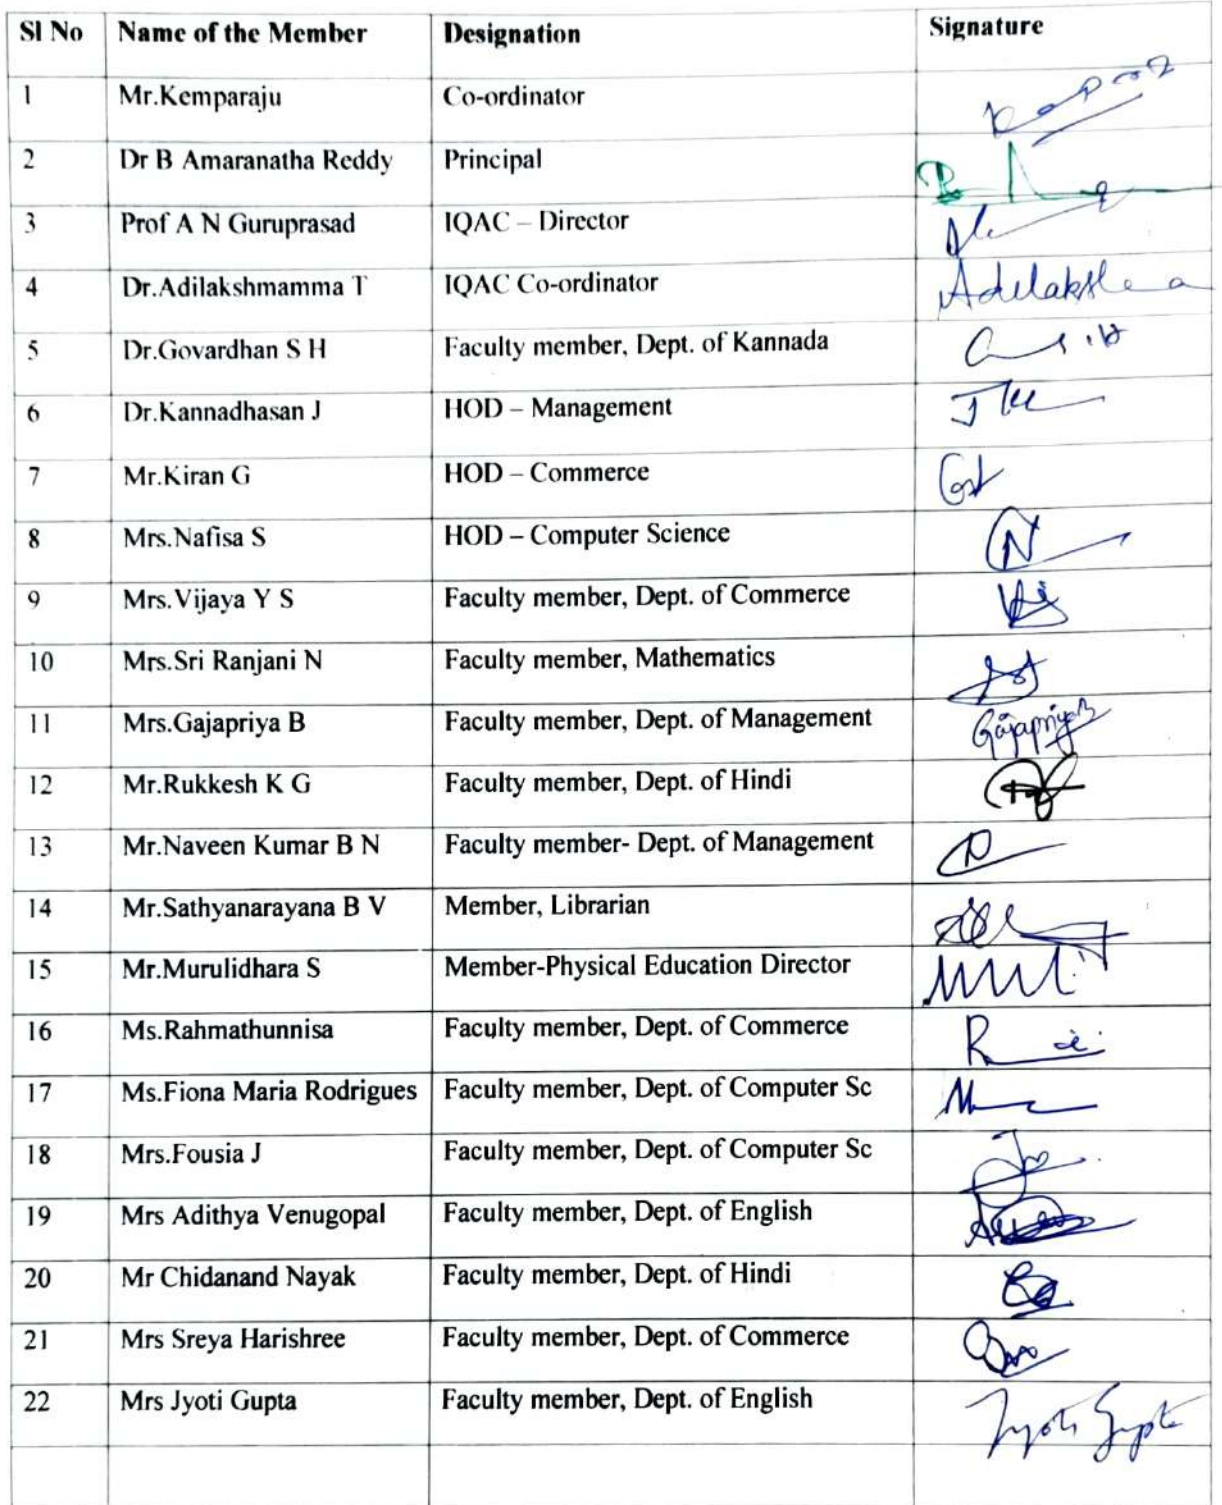 Sl No Name of the Member Designation Signature
1 Mr.Kemparaju Co-ordinator
2 Dr B Amaranatha Reddy Principal
3 Prof A N Guruprasad IQAC – Director
4 Dr.Adilakshmamma T IQAC Co-ordinator
5 Dr.Govardhan S H Faculty member, Dept. of Kannada
6 Dr.Kannadhasan J HOD – Management
7 Mr.Kiran G HOD – Commerce
8 Mrs.Nafisa S HOD – Computer Science
9 Mrs.Vijaya Y S Faculty member, Dept. of Commerce
10 Mrs.Sri Ranjani N Faculty member, Mathematics
11 Mrs.Gajapriya B Faculty member, Dept. of Management Gajapriya B
12 Mr.Rukkesh K G Faculty member, Dept. of Hindi
13 Mr.Naveen Kumar B N Faculty member- Dept. of Management
14 Mr.Sathyanarayana B V Member, Librarian
15 Mr.Murulidhara S Member-Physical Education Director
16 Ms.Rahmathunnisa Faculty member, Dept. of Commerce
17 Ms.Fiona Maria Rodrigues Faculty member, Dept. of Computer Sc
18 Mrs.Fousia J Faculty member, Dept. of Computer Sc
19 Mrs Adithya Venugopal Faculty member, Dept. of English
20 Mr Chidanand Nayak Faculty member, Dept. of Hindi
21 Mrs Sreya Harishree Faculty member, Dept. of Commerce
22 Mrs Jyoti Gupta Faculty member, Dept. of English Jyoti Gupta